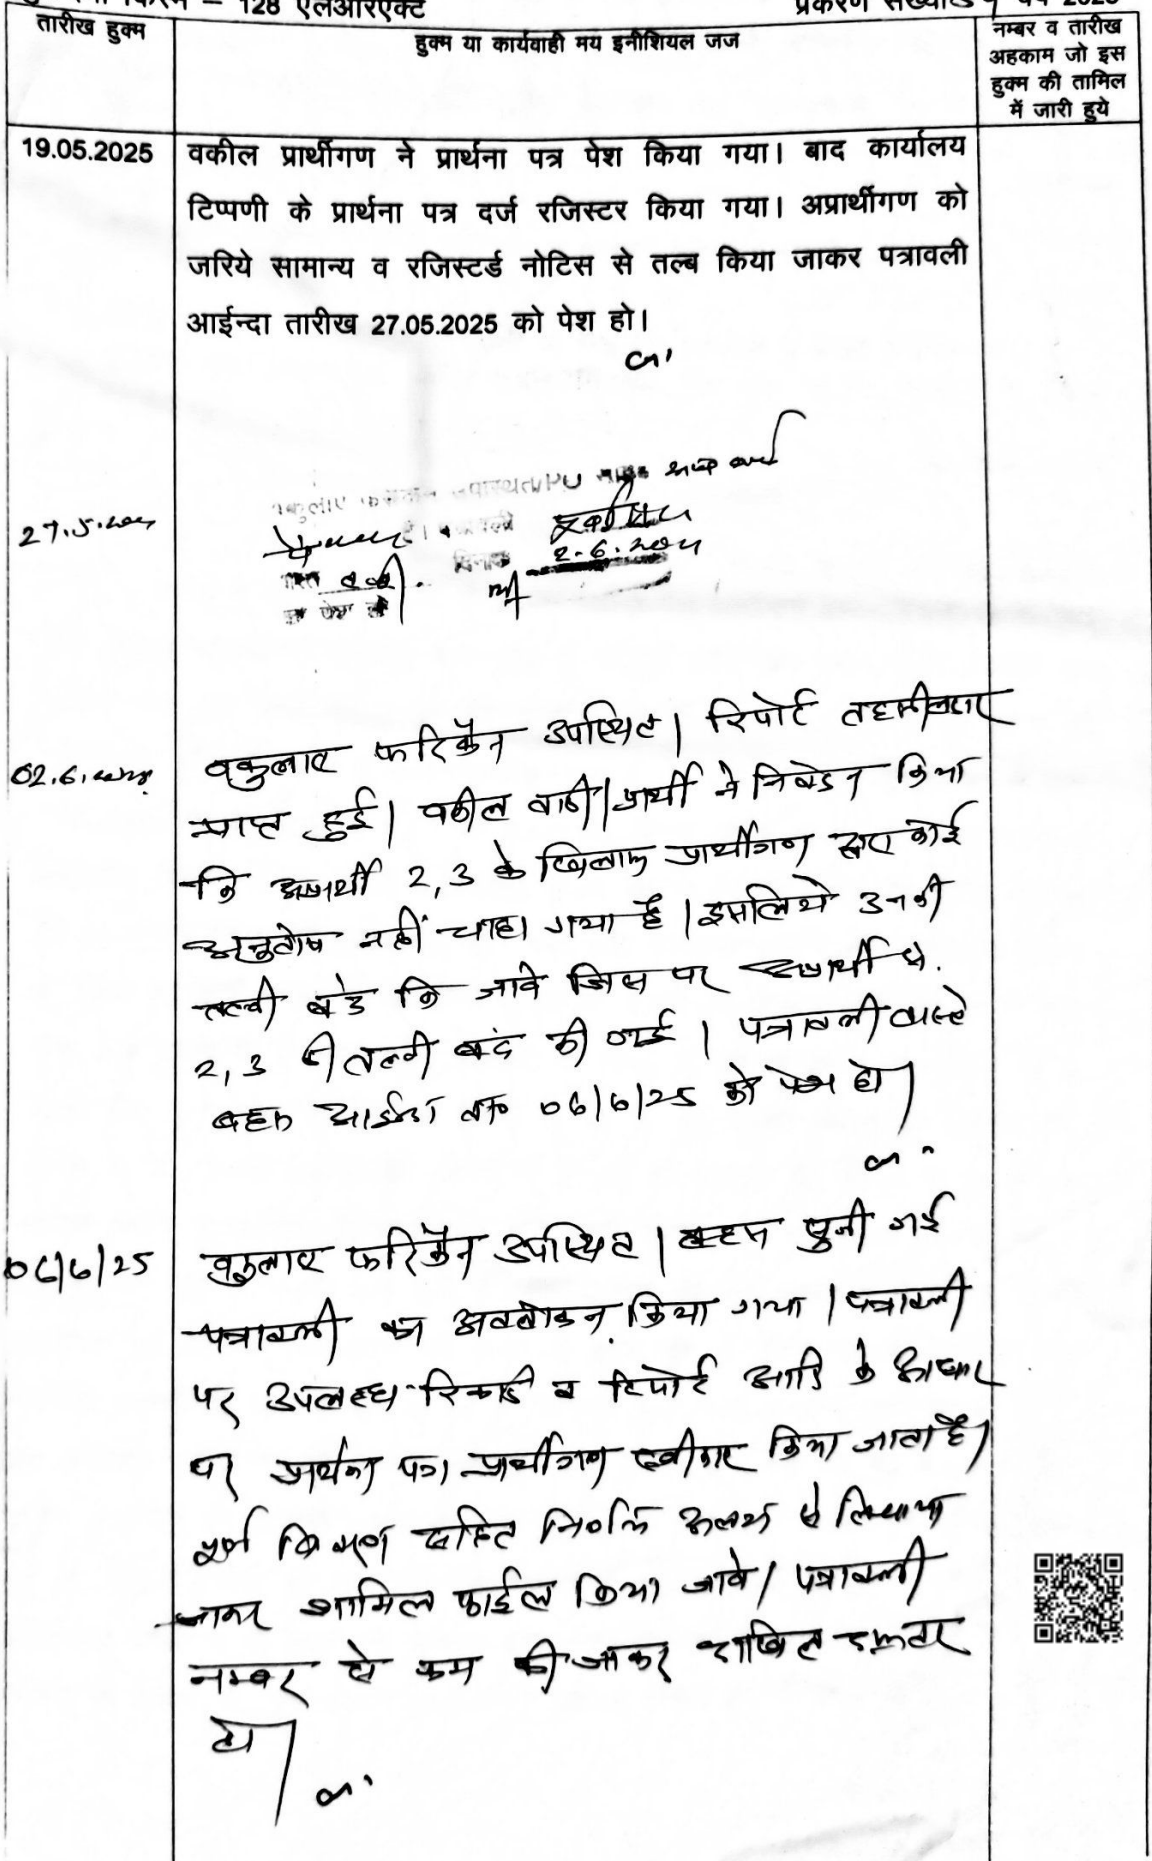 128 एलआरएक्ट
तारीख हुक्म
हुक्म या कार्यवाही मय इनीशियल जज
नम्बर व तारीख
अहकाम जो इस
हुक्म की तामिल
में जारी हुये
19.05.2025
वकील प्रार्थीगण ने प्रार्थना पत्र पेश किया गया। बाद कार्यालय
टिप्पणी के प्रार्थना पत्र दर्ज रजिस्टर किया गया। अप्रार्थीगण को
जरिये सामान्य व रजिस्टर्ड नोटिस से तल्ब किया जाकर पत्रावली
आईन्दा तारीख 27.05.2025 को पेश हो।
27.5.
दिनांक 2.6.
02.6.
वकुलाए फरिकैन उपस्थित। रिपोर्ट तहसीलदार
प्राप्त हुई। वकील वादी/प्रार्थी ने निवेदन किया
कि अप्रार्थी 2,3 के खिलाफ प्रार्थीगण द्वारा कोई
अनुतोष नहीं चाहा गया है। इसलिये उनकी
तल्बी बंद कि जावे जिस पर अप्रार्थी सं.
2,3 की तल्बी बंद की गई। पत्रावली वास्ते
बहस आईन्दा ता० 06/6/25 को पेश हो।
06/6/25
वकुलाए फरिकैन उपस्थित। बहस सुनी गई
पत्रावली का अवलोकन किया गया। पत्रावली
पर उपलब्ध रिकार्ड व रिपोर्ट आदि के आधार
पर प्रार्थना पत्र प्रार्थीगण स्वीकार किया जाता है।
पूर्ण विवरण सहित निर्णय अलग से लिखाया
जाकर शामिल फाईल किया जावे। पत्रावली
नम्बर से कम की जाकर दाखिल दफ्तर
हो।